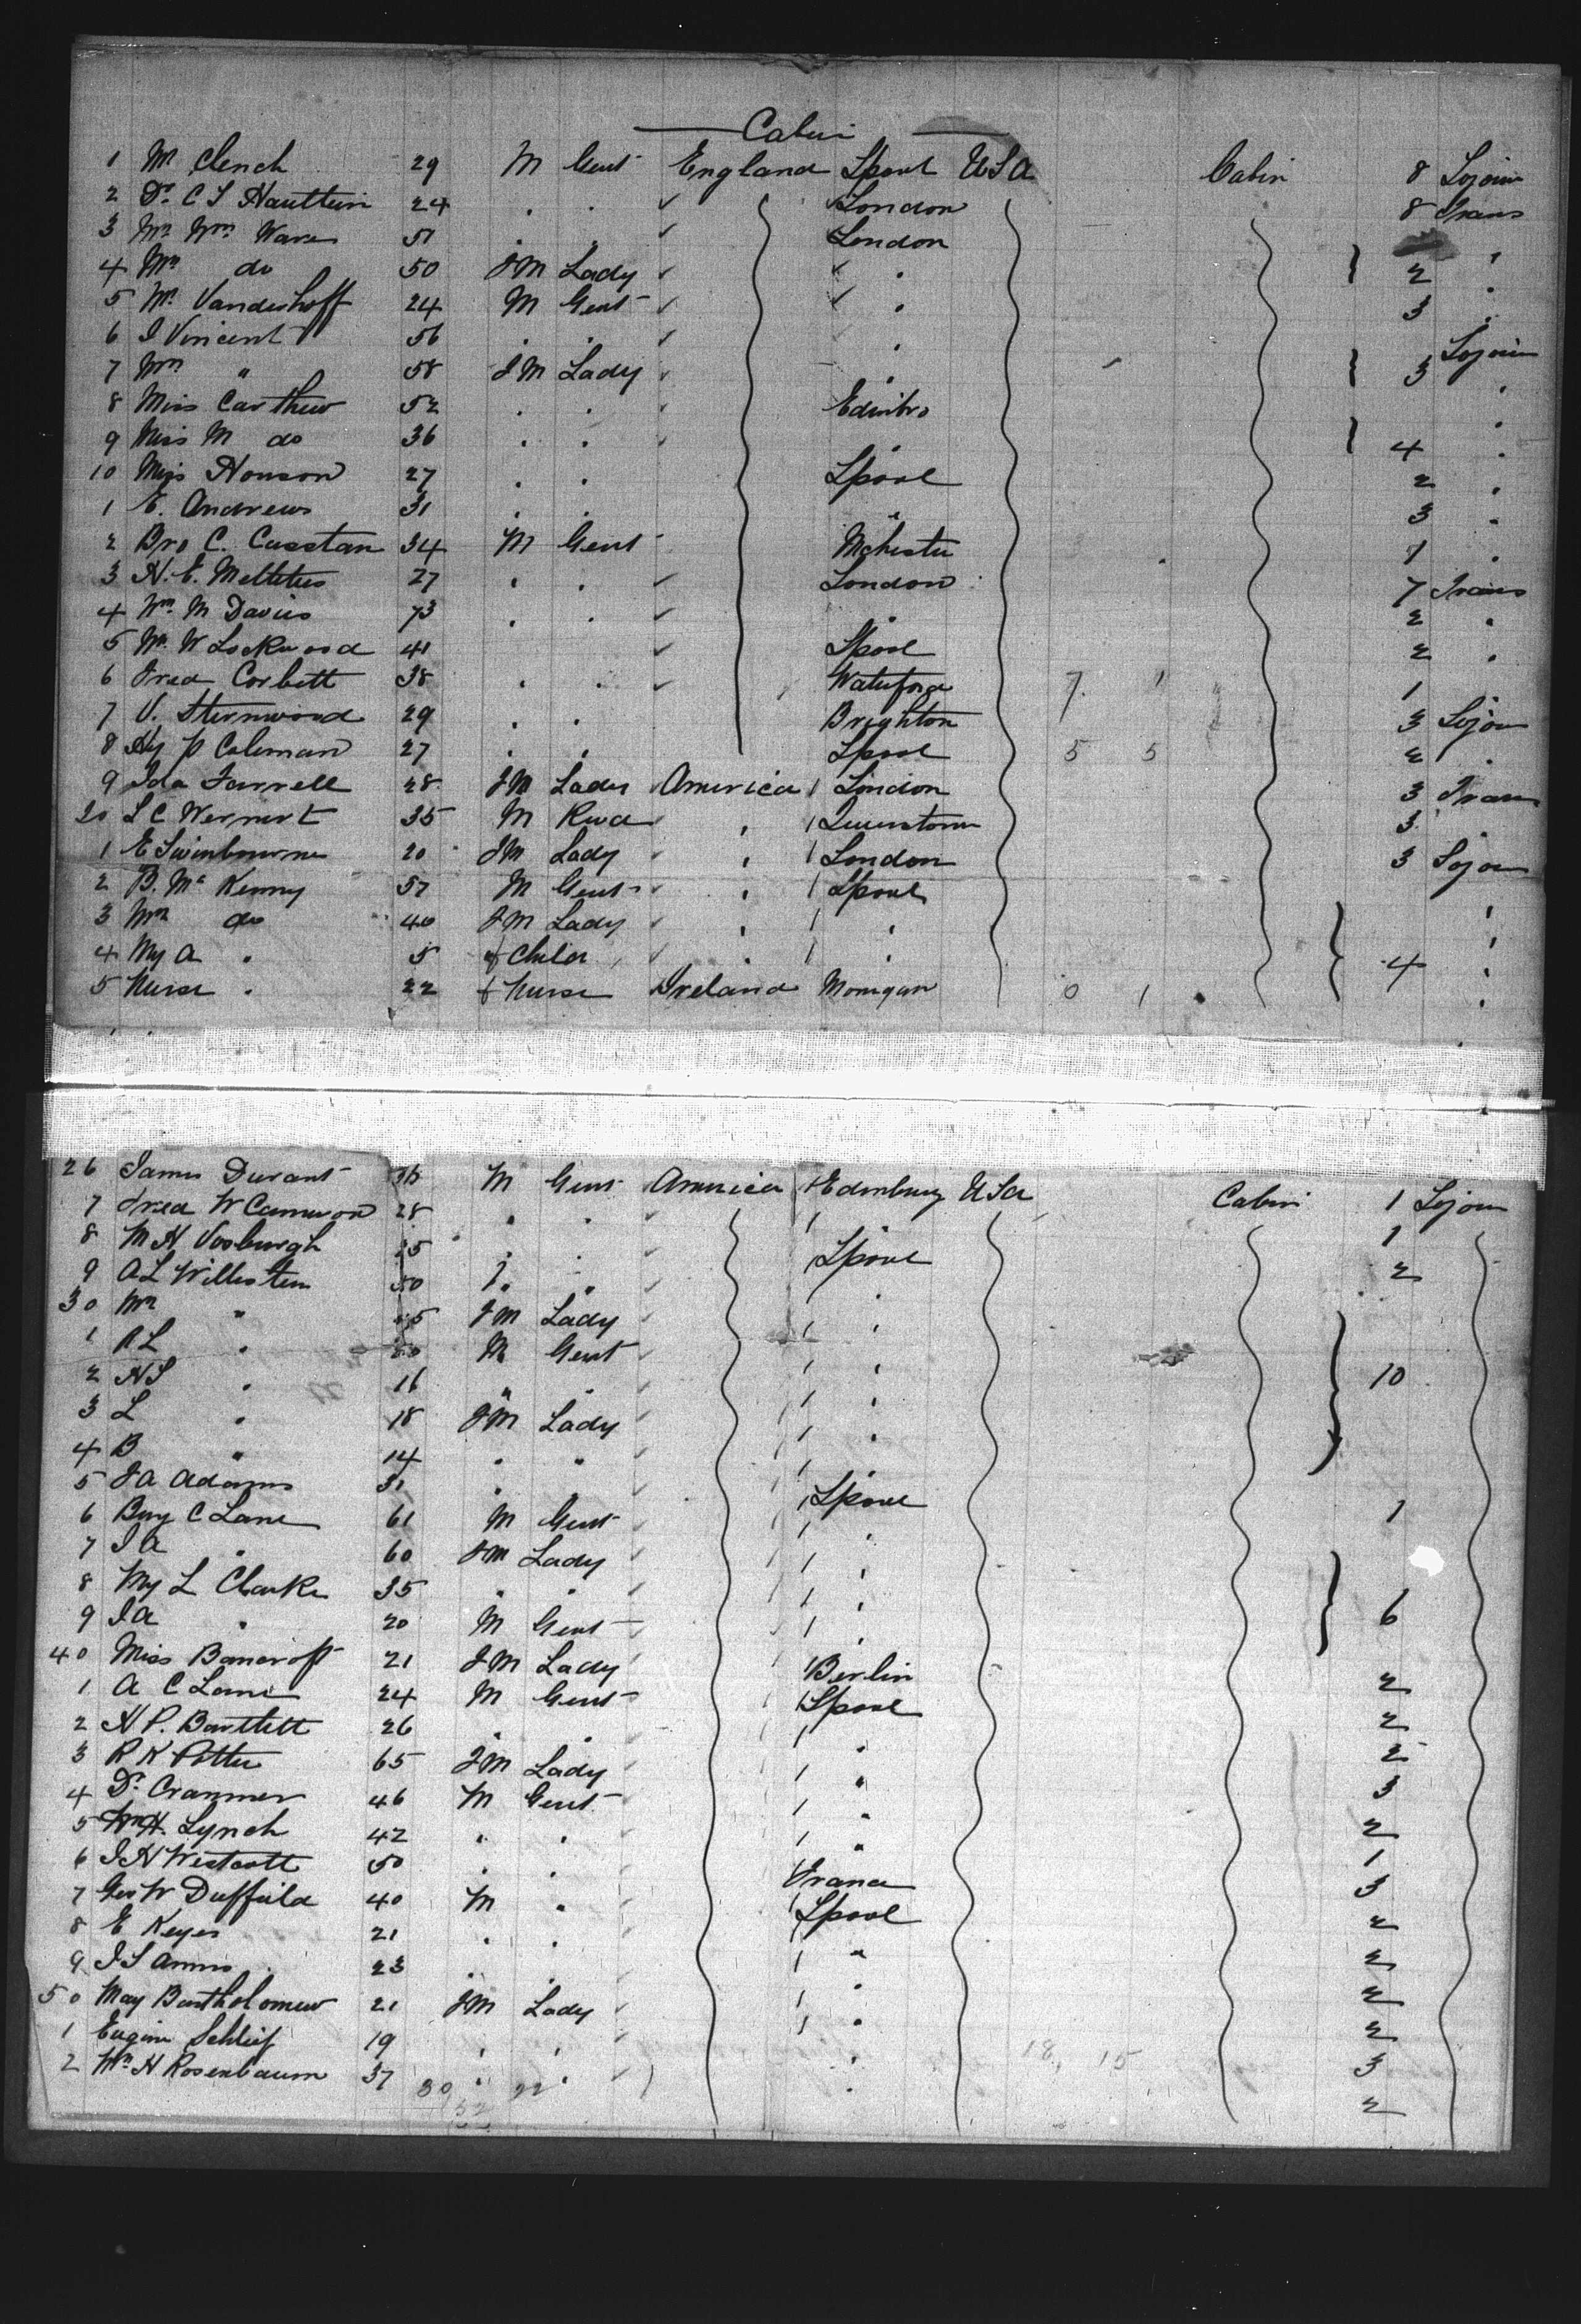 Cabin
1 Mr Clench 29 M Gent England Lpool USA Cabin 8 Sojourn
2 Dr. C S Hauttein 24 . . London 8 Trans
3 Mr Wm Ware 51 . . London
4 Mrs do 50 FM Lady . 2
5 Mr Vanderhoff 24 M Gent . 3
6 J Vincent 56 . . . Sojourn
7 Mrs " 58 FM Lady . 3
8 Miss Carthew 52 . . Edinbro
9 Miss M do 36 . . . 4
10 Miss Honson 27 . . Lpool 2
1 E. Andrews 31 . . " 3
2 Bro C. Casstan 34 M Gent Mchester 1
3 H. E. 27 . . London 7 Trans
4 Wm M Davies 73 . . . 2
5 Mr. W Lockwood 41 Lpool 2
6 Fred Corbett 38 . . Waterford 7 1 1
7 V. Sternwood 29 . . Brighton 3 Sojou
8 Hy P Coleman 27 . . Lpool 5 5 2
9 Ida Farrell 28 FM Lady America London 3 Trans
20 L C Wernert 35 M Rvd . Queenstown 3
1 E Swinbourne 20 FM Lady . London 3 Sojou
2 B. Mc Kenny 57 M Gent . Lpool
3 Mrs do 40 FM Lady . .
4 My A . 5 f Child . . 4
5 Nurse . 22 f Nurse Ireland Monigan 0 1
26 James Durant M Gent America Edinburg USA Cabin 1 Sojou
7 Fred W Cameron 28 . . 1
8 M H Vosburgh . . Lpool 2
9 A L Williston 50 . " .
30 Mrs " FM Lady .
1 R L . M Gent .
2 H S . 16 " . . 10
3 L . 18 FM Lady .
4 B " 14 . " .
5 J A Adams 31 . . Lpool 1
6 Benj C Lane 61 M Gent .
7 J A " 60 FM Lady .
8 My L Clarke 35 " . .
9 J A " 20 M Gent . 6
40 Miss Bancroft 21 FM Lady Berlin 2
1 A C Lane 24 M Gent Lpool 2
2 H P. Bartlett 26 . . . 2
3 R K Potter 65 FM Lady . 3
4 Dr. Cranmer 46 M Gent . 2
5 Wm H. Lynch 42 . . . 1
6 J H Westcott 50 . . France 3
7 Geo W Duffield 40 M . Lpool 2
8 E Keyes 21 . . " 2
9 J S Amms 23 . . . 2
50 May Bartholomew 21 FM Lady . 2
1 Eugine Schleif 19 . . . 18 15 3
2 Wm H Rosenbaum 37 . . . 2
30 22
52